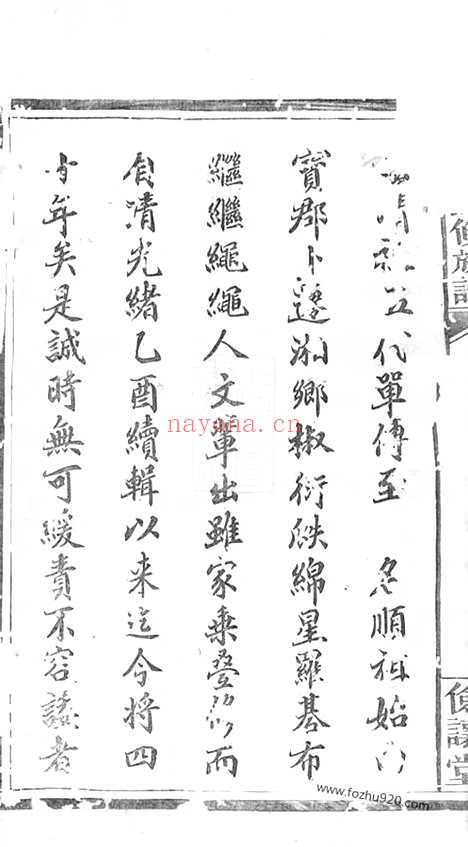 五代單傳至 順祖始
寶郡卜遷湘鄉椒衍瓞綿星羅棊布
繼繼繩繩人文軰出雖家乘疊 而
自清光緒乙酉續輯以来迄今將四
十年矣是誠時無可緩責不容諉者
族譜
讓堂
nayana.cn
www.fozhu920.com